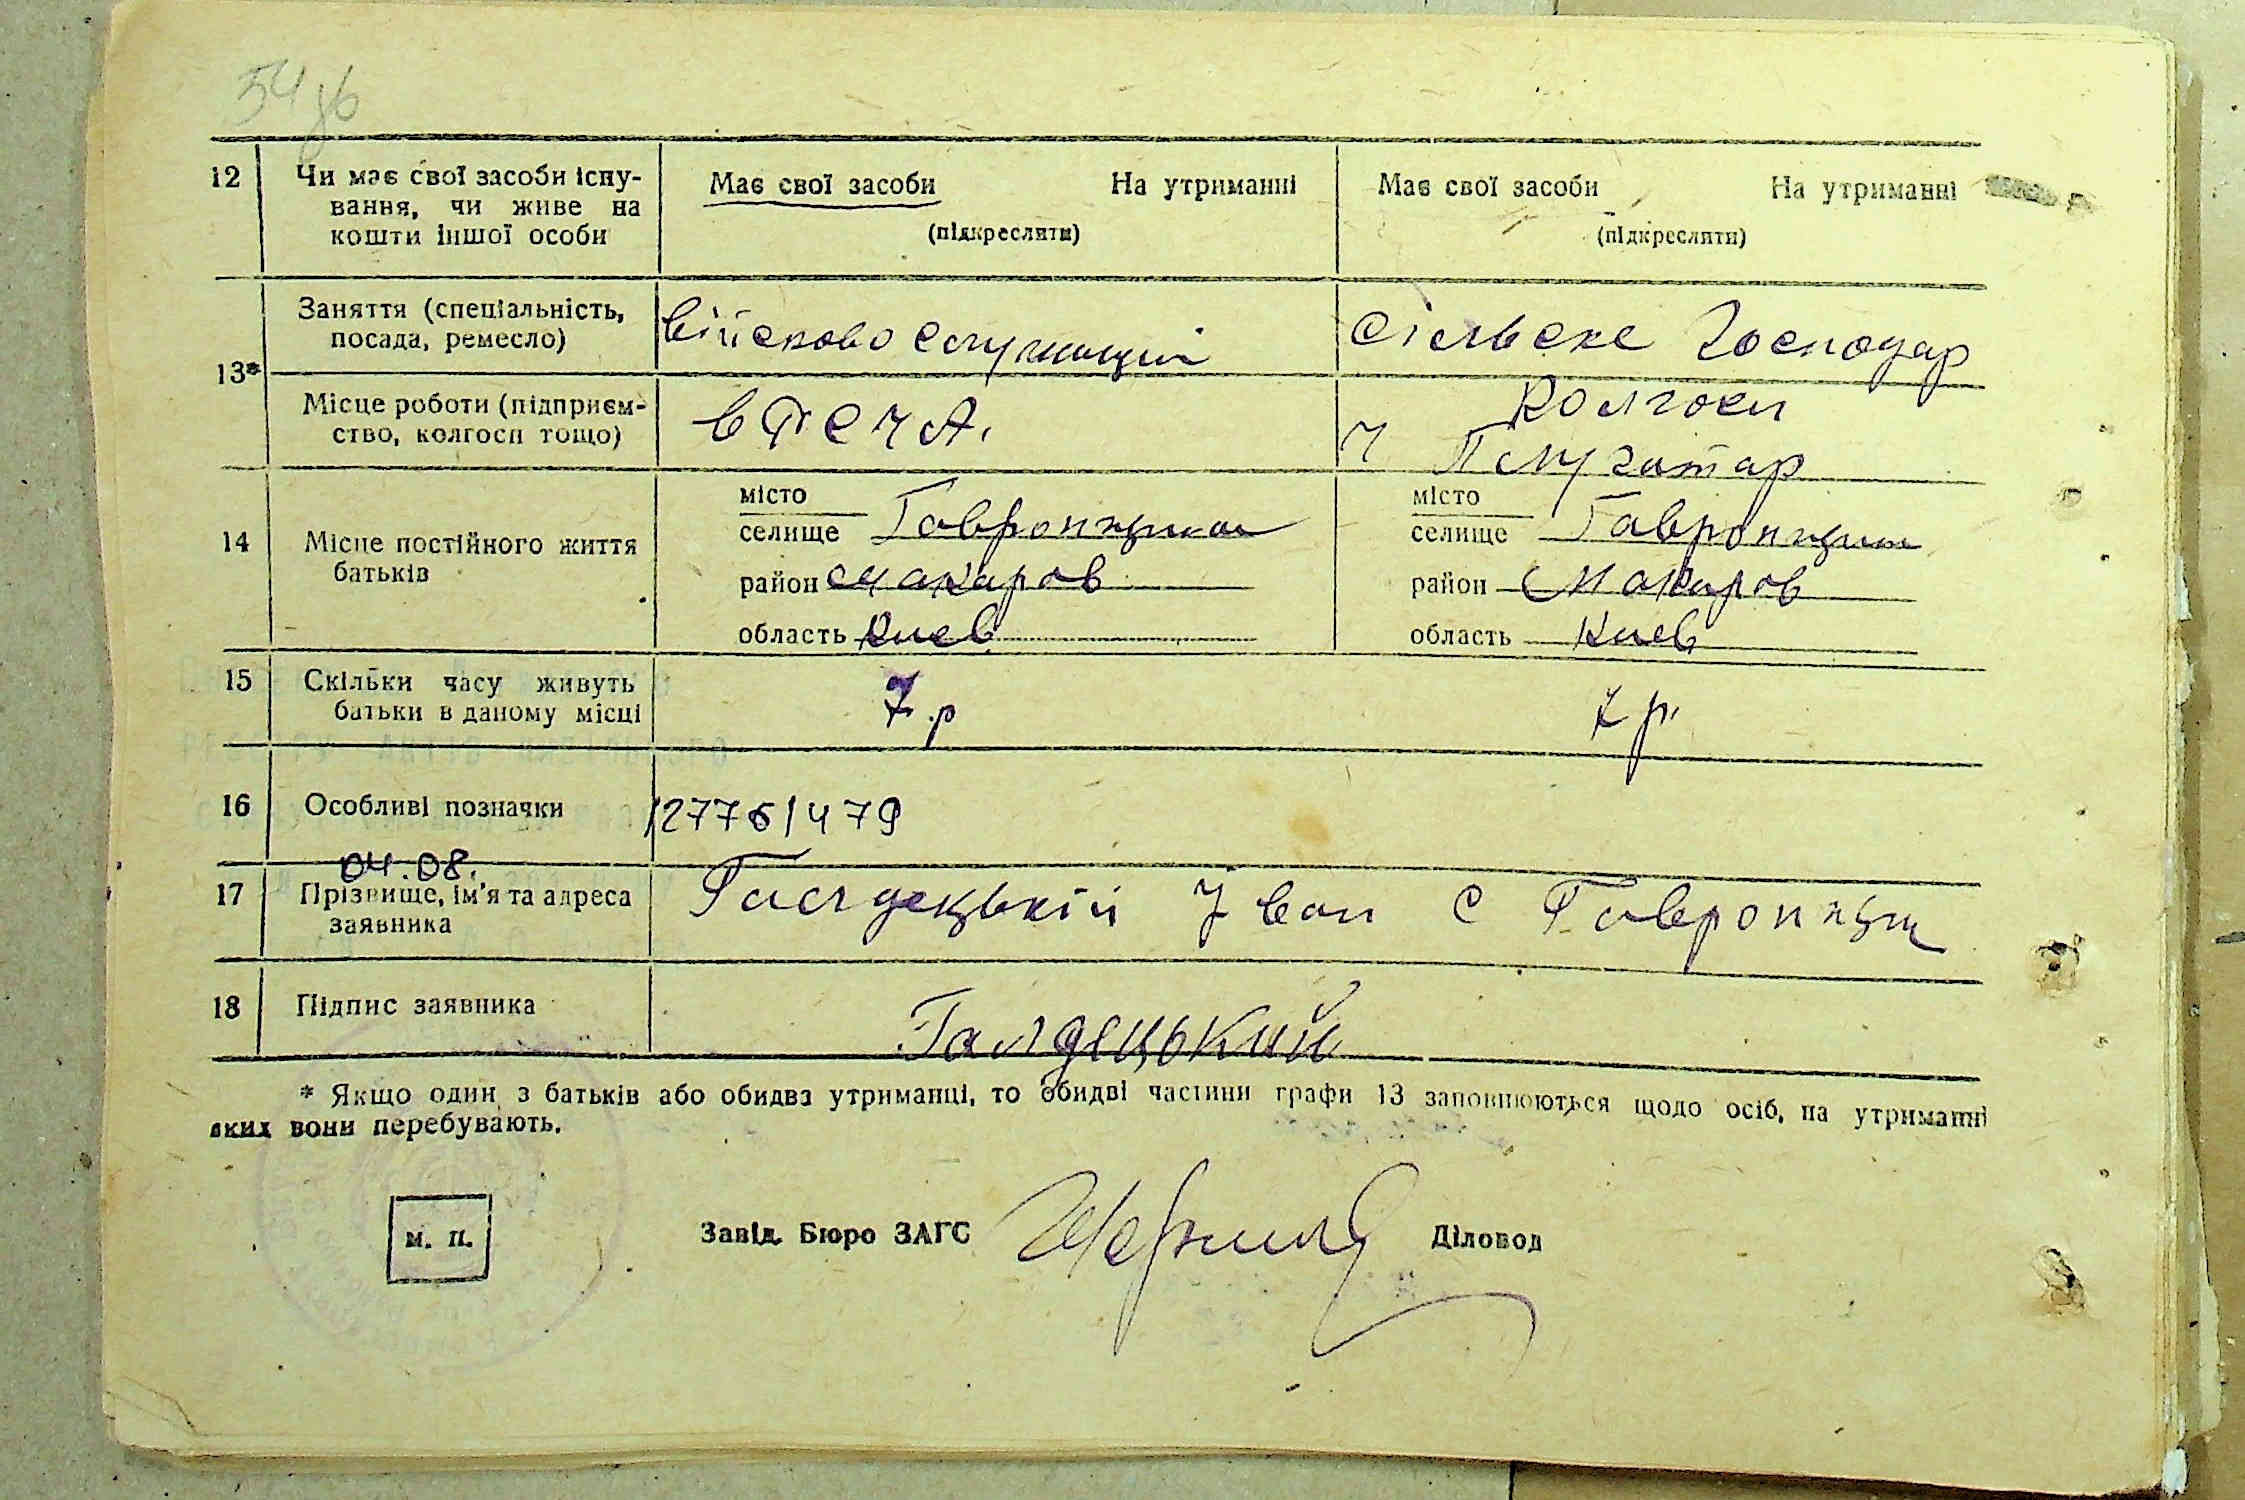 54 зв
12 Чи має свої засоби існу- Має свої засоби На утриманні Має свої засоби На утриманні
вання, чи живе на
кошти іншої особи (підкреслити) (підкреслити)
Заняття (спеціальність, військово служащий сільске господар
посада, ремесло)
13*
Місце роботи (підприєм- в РСЧА. колгосп
ство, колгосп тощо) ч Плугатар
14 Місце постійного життя
батьків
місто
селище Гавронщина
район Макаров
область Киев
місто
селище Гавронщина
район Макаров
область Киев
15 Скільки часу живуть 7 р 7 р.
батьки в даному місці
16 Особливі позначки 12776/479
04.08.
17 Прізвище, ім'я та адреса Галдецькій Іван с Гавронщи
заявника
18 Підпис заявника Галдецький
* Якщо один з батьків або обидва утриманці, то обидві частини графи 13 заповнюються щодо осіб, на утриманні
яких вони перебувають.
м. п.
Завід. Бюро ЗАГС Діловод